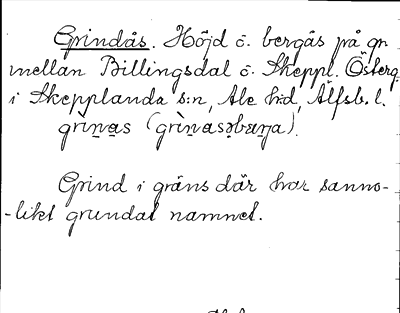 Grindås. Höjd o. bergås på gr.
mellan Billingsdal o. Skeppl. Österg.
i Skepplanda s:n, Ale h:d, Älfsb. l.
Grind i gräns där har sanno-
-likt grundat namnet.